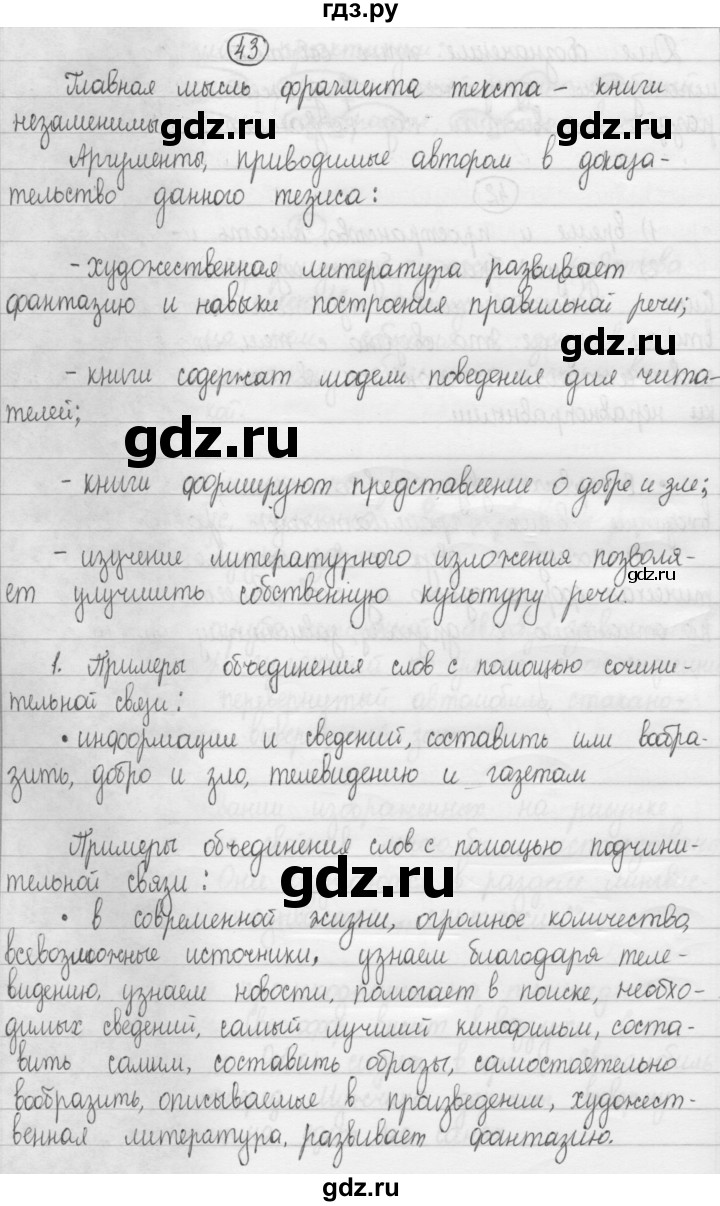 гдз.ру
43
Главная мысль фрагмента текста – книги
незаменимы gdz.ru gdz.ru
Аргументы, приводимые автором в доказа-
тельство данного тезиса:
- художественная литература развивает
фантазию и навыки построения правильной речи;
gdz.ru
- книги содержат модели поведения для чита-
телей;
gdz.ru
- книги формируют представление о добре и зле;
- изучение литературного изложения позволя-
gdz.ru
ет улучшить собственную культуру речи.
1. Примеры объединения слов с помощью сочини-
тельной связи:
• информации и сведений, составить или вообра-
зить, добро и зло, телевидению и газетам
Примеры объединения слов с помощью подчини-
тельной связи:
gdz.ru
• в современной жизни, огромное количество,
всевозможные источники, узнаем благодаря теле-
видению, узнаем новости, помогает в поиске, необхо-
димых сведений, самый лучший кинофильм, соста-
вить самим, составить образы, самостоятельно
вообразить, описываемые в произведении, художест-
венная литература, развивает фантазию.
gdz.ru